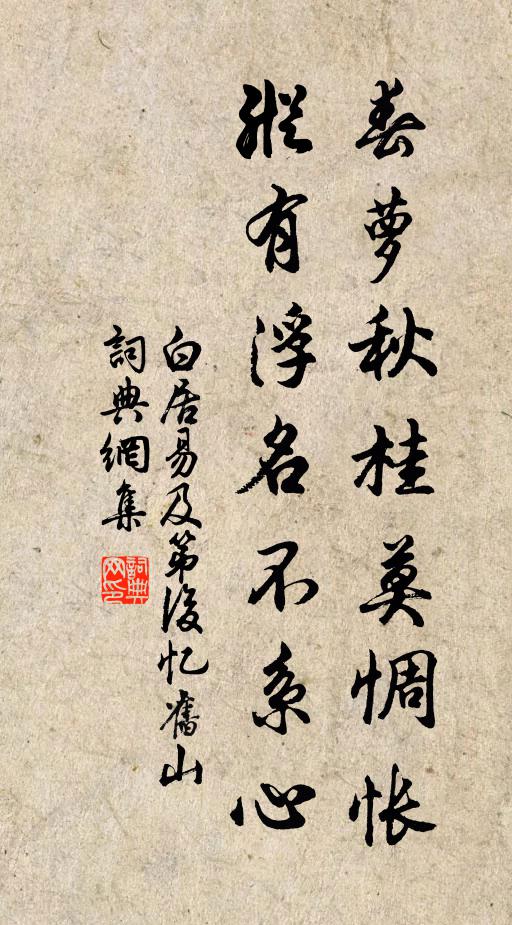 春萝秋桂莫惆怅
縱有浮名不系心
白居易及第後忆舊山
詞典網集
詞典
网印